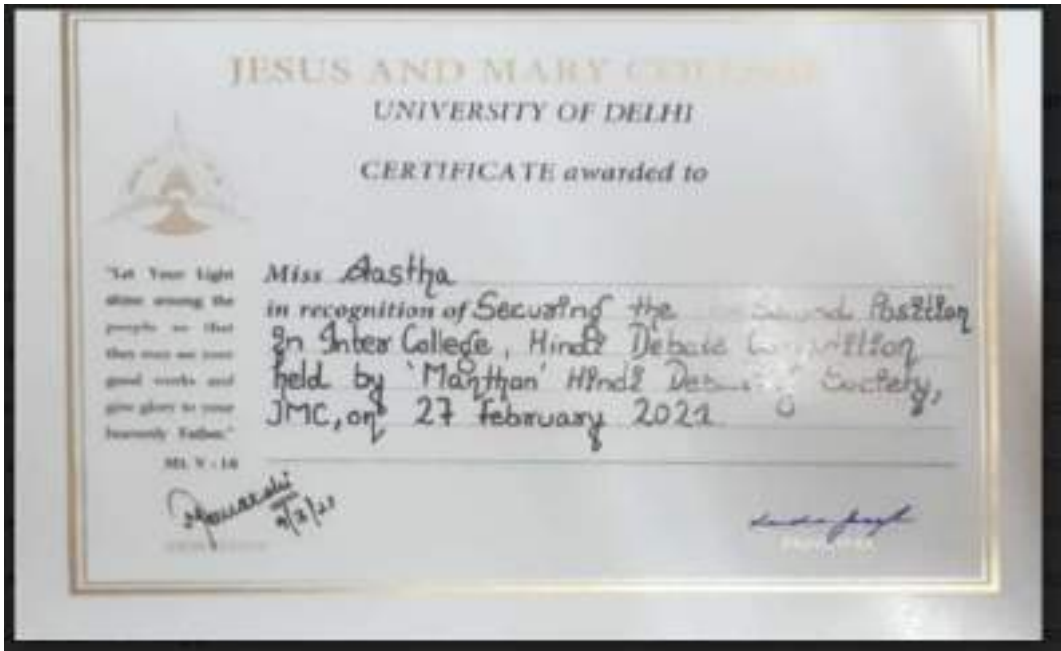 JESUS AND MARY COLLEGE
UNIVERSITY OF DELHI
CERTIFICATE awarded to
"Let Your Light
shine among the
people so that
they may see your
good works and
give glory to your
heavenly Father."
Mt. V - 16
Miss Aastha
in recognition of Securing the Second Position
In Inter College, Hindi Debate Competition
held by 'Manthan' Hindi Debating Society,
JMC, on 27 February 2021